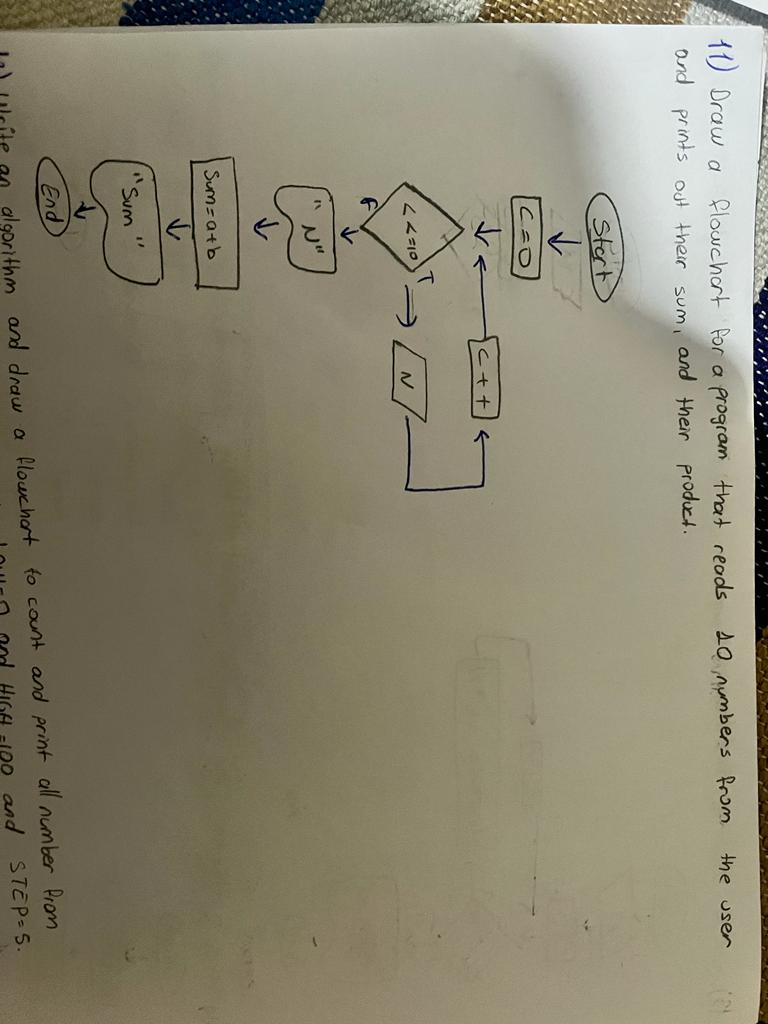 11) Draw a flowchart for a program that reads 10 numbers from the user
and prints out their sum, and their product.
Start
C=0
C++
< <=10
T
F
N
"N"
Sum=a+b
"Sum"
End
Write an algorithm and draw a flowchart to count and print all number from
and HIGH=100 and STEP=5.